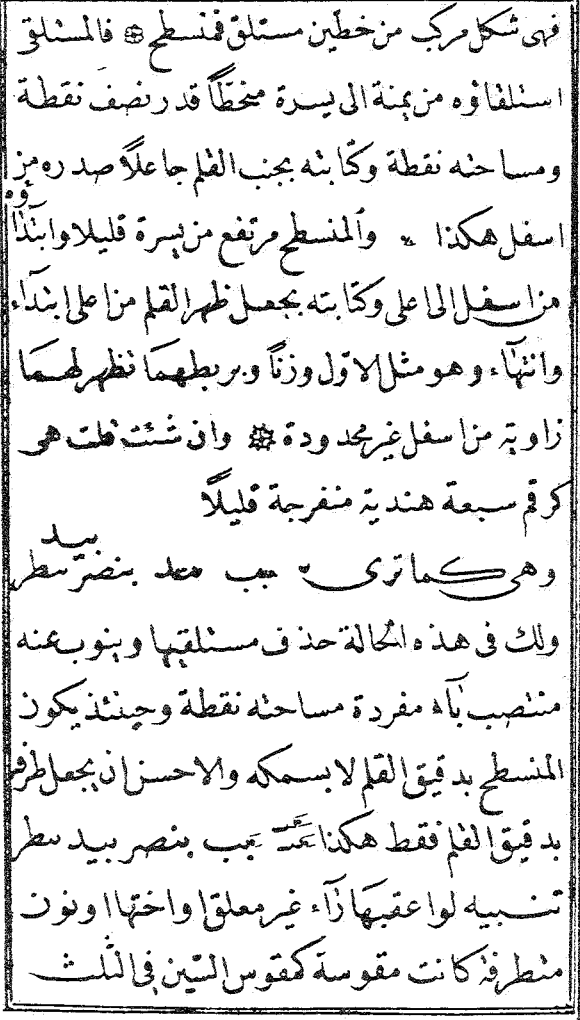 فهى شكل مركب من خطين مستلق فمنسطح ۞ فالمستلقى
استلقاؤه من يمنة الى يسرة منحطاً قدر نصف نقطة
ومساحته نقطة وكتابته بجنب القلم جاعلاً صدره من
اسفل هكذا والمنسطح مرتفع من يسرة قليلا وابتداؤه
من اسفل الى اعلى وكتابته بجعل ظهر القلم من اعلى ابتدآء
وانتهآء وهو مثل الاول وزناً وبربطهما تظهر لهما
زاوية من اسفل غير محدودة ۞ وان شئت قلت هى
كرقم سبعة هندية منفرجة قليلاً
وهى كما ترى بيد
ولك فى هذه الحالة حذف مستلقيها وينوب عنه
منتصب بآء مفردة مساحته نقطة وحينئذ يكون
المنسطح بدقيق القلم لا بسمكه والاحسن ان يجعل طرفه
بدقيق القلم فقط هكذا بنصر بيد سطر
تنبيه لو اعقبها رآء غير معلق او اختها او نون
متطرفة كانت مقوسة كمقوس السين فى الثلث